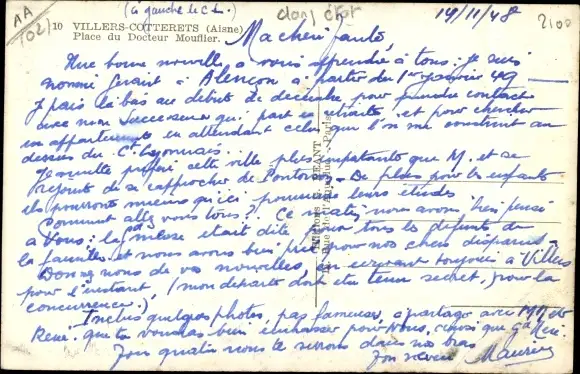 AA
(02)
(à gauche le C L.)
10 VILLERS-COTTERETS (Aisne)
Place du Docteur Mouflier.
19/11/48
2100
Ma chérie
Une bonne nouvelle à vous apprendre à tous : je suis
nommé Gérant à Alençon à partir du 1er janvier 49
Je pars là bas au début de décembre pour prendre contact
avec mon successeur qui part en retraite, et pour chercher
un appartement en attendant celui que l'on me construit au
dessus du Ct Lyonnais.
cette ville plus que M. et se
de se rapprocher de Pontoise. De plus pour les enfants
ils pourront mieux qu'ici poursuivre leurs études
Comment allez vous tous ? Ce matin, nous avons bien pensé
à Vous : la messe était dite pour tous les défunts de
la famille et nous avons bien prié pour nos chers disparus.
Donnez nous de vos nouvelles, en écrivant toujours à Villers
pour l'instant (mon départ doit être tenu secret, pour la
concurrence).
Inclus quelques photos, pas fameuses, à partager avec
René. que tu voudras bien embrasser pour Nous, ainsi que
Tous quatre nous te serrons dans nos bras
Ton Maurice